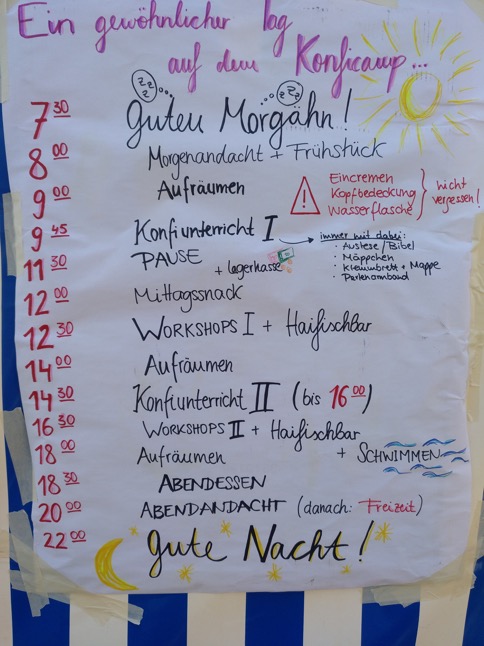 Ein gewöhnlicher Tag
auf dem Konficamp...
zzz zzz
7 30 Guten Morgähn!
8 00 Morgenandacht + Frühstück
9 00 Aufräumen
! Eincremen
Kopfbedeckung
Wasserflasche
nicht vergessen!
9 45 Konfiunterricht I
immer mit dabei:
· Auslese/Bibel
· Mäppchen
· Klemmbrett + Mappe
· Perlenarmband
11 30 PAUSE
+ Lagerkasse
12 00 Mittagssnack
12 30 WORKSHOPS I + Haifischbar
14 00 Aufräumen
14 30 Konfiunterricht II (bis 16 00)
16 30 WORKSHOPS II + Haifischbar
+ SCHWIMMEN
18 00 Aufräumen
18 30 ABENDESSEN
20 00 ABENDANDACHT (danach: Freizeit)
22 00 gute Nacht!